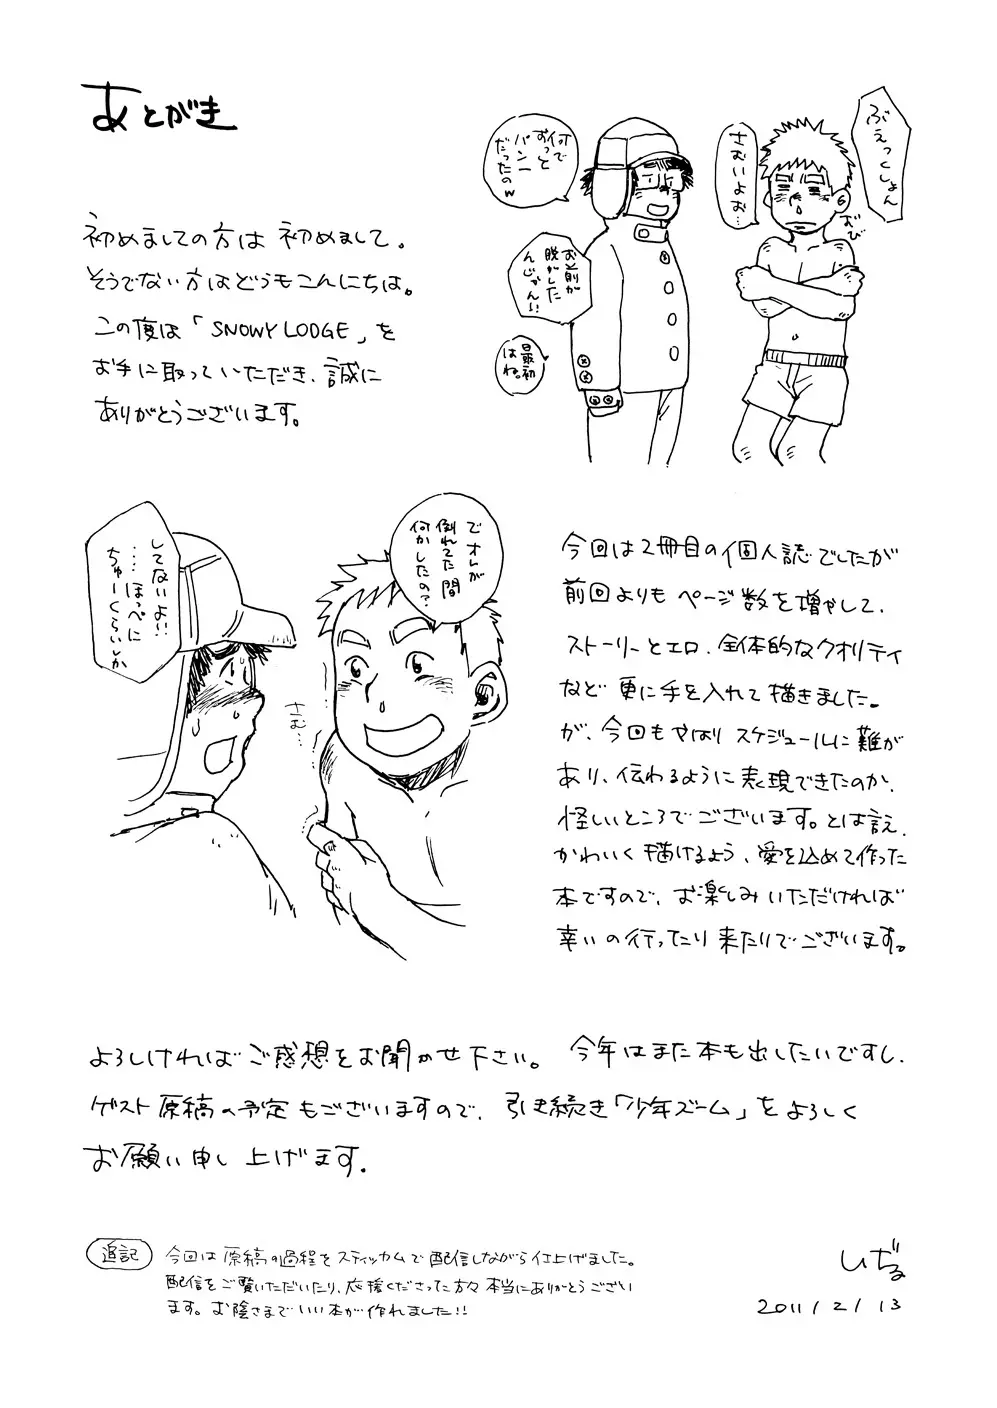 あとがき
初めましての方は初めまして。
そうでない方はどうもこんにちは。
この度は「SNOWY LODGE」を
お手に取っていただき、誠に
ありがとうございます。
ぶえっくしょん
さむいよお…
おび
何で
ずっと
パンー
だったのw
お前が
脱がした
んじゃん!!
最初
はね。
でオレが
倒れてた間
何かしたの?
してないよ!!
…ほっぺに
ちゅーくらいしか
さむ…
今回は2冊目の個人誌でしたが
前回よりもページ数を増やして、
ストーリーとエロ、全体的なクオリティ
など更に手を入れて描きました。
が、今回もやはりスケジュールに難が
あり、伝わるように表現できたのか、
怪しいところでございます。とは言え、
かわいく描けるよう、愛を込めて作った
本ですので、お楽しみいただければ
幸いの行ったり来たりでございます。
よろしければご感想をお聞かせ下さい。 今年はまた本も出したいですし、
ゲスト原稿の予定もございますので、引き続き「少年ズーム」をよろしく
お願い申し上げます。
追記 今回は原稿の過程をスティッカムで配信しながら仕上げました。
配信をご覧いただいたり、応援くださった方々本当にありがとうござい
ます。お陰さまでいい本が作れました!!
しげる
2011/2/13